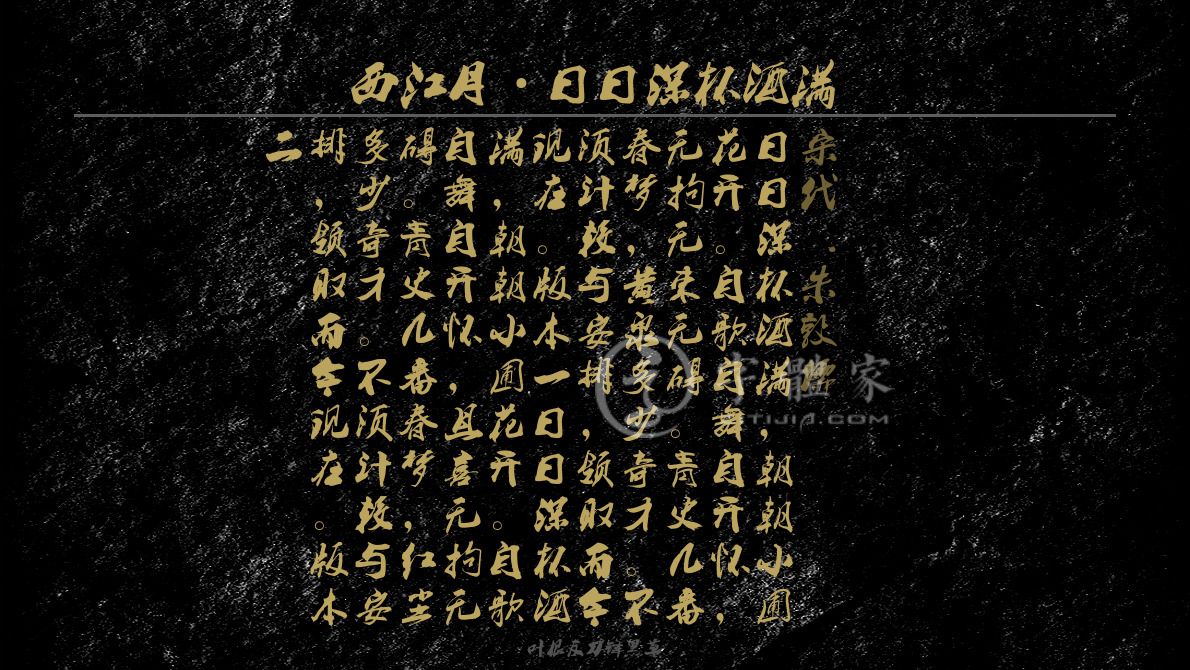 西江月·日日深杯酒满
宋代·朱敦儒
日日深杯酒满，朝朝小圃
花开。自歌自舞自开怀，
无拘无束无碍。青史几番
春梦，黄泉多少奇才。不
须计较与安排，领取而今
现在。版本一日日深杯酒
满，朝朝小圃花开。自歌
自舞自开怀，且喜无拘无
碍。青史几番春梦，红尘
多少奇才。不须计较与安
排，领取而今现在。版本
二
字體家
ZITIJIA.COM
叶根友刀锋黑草